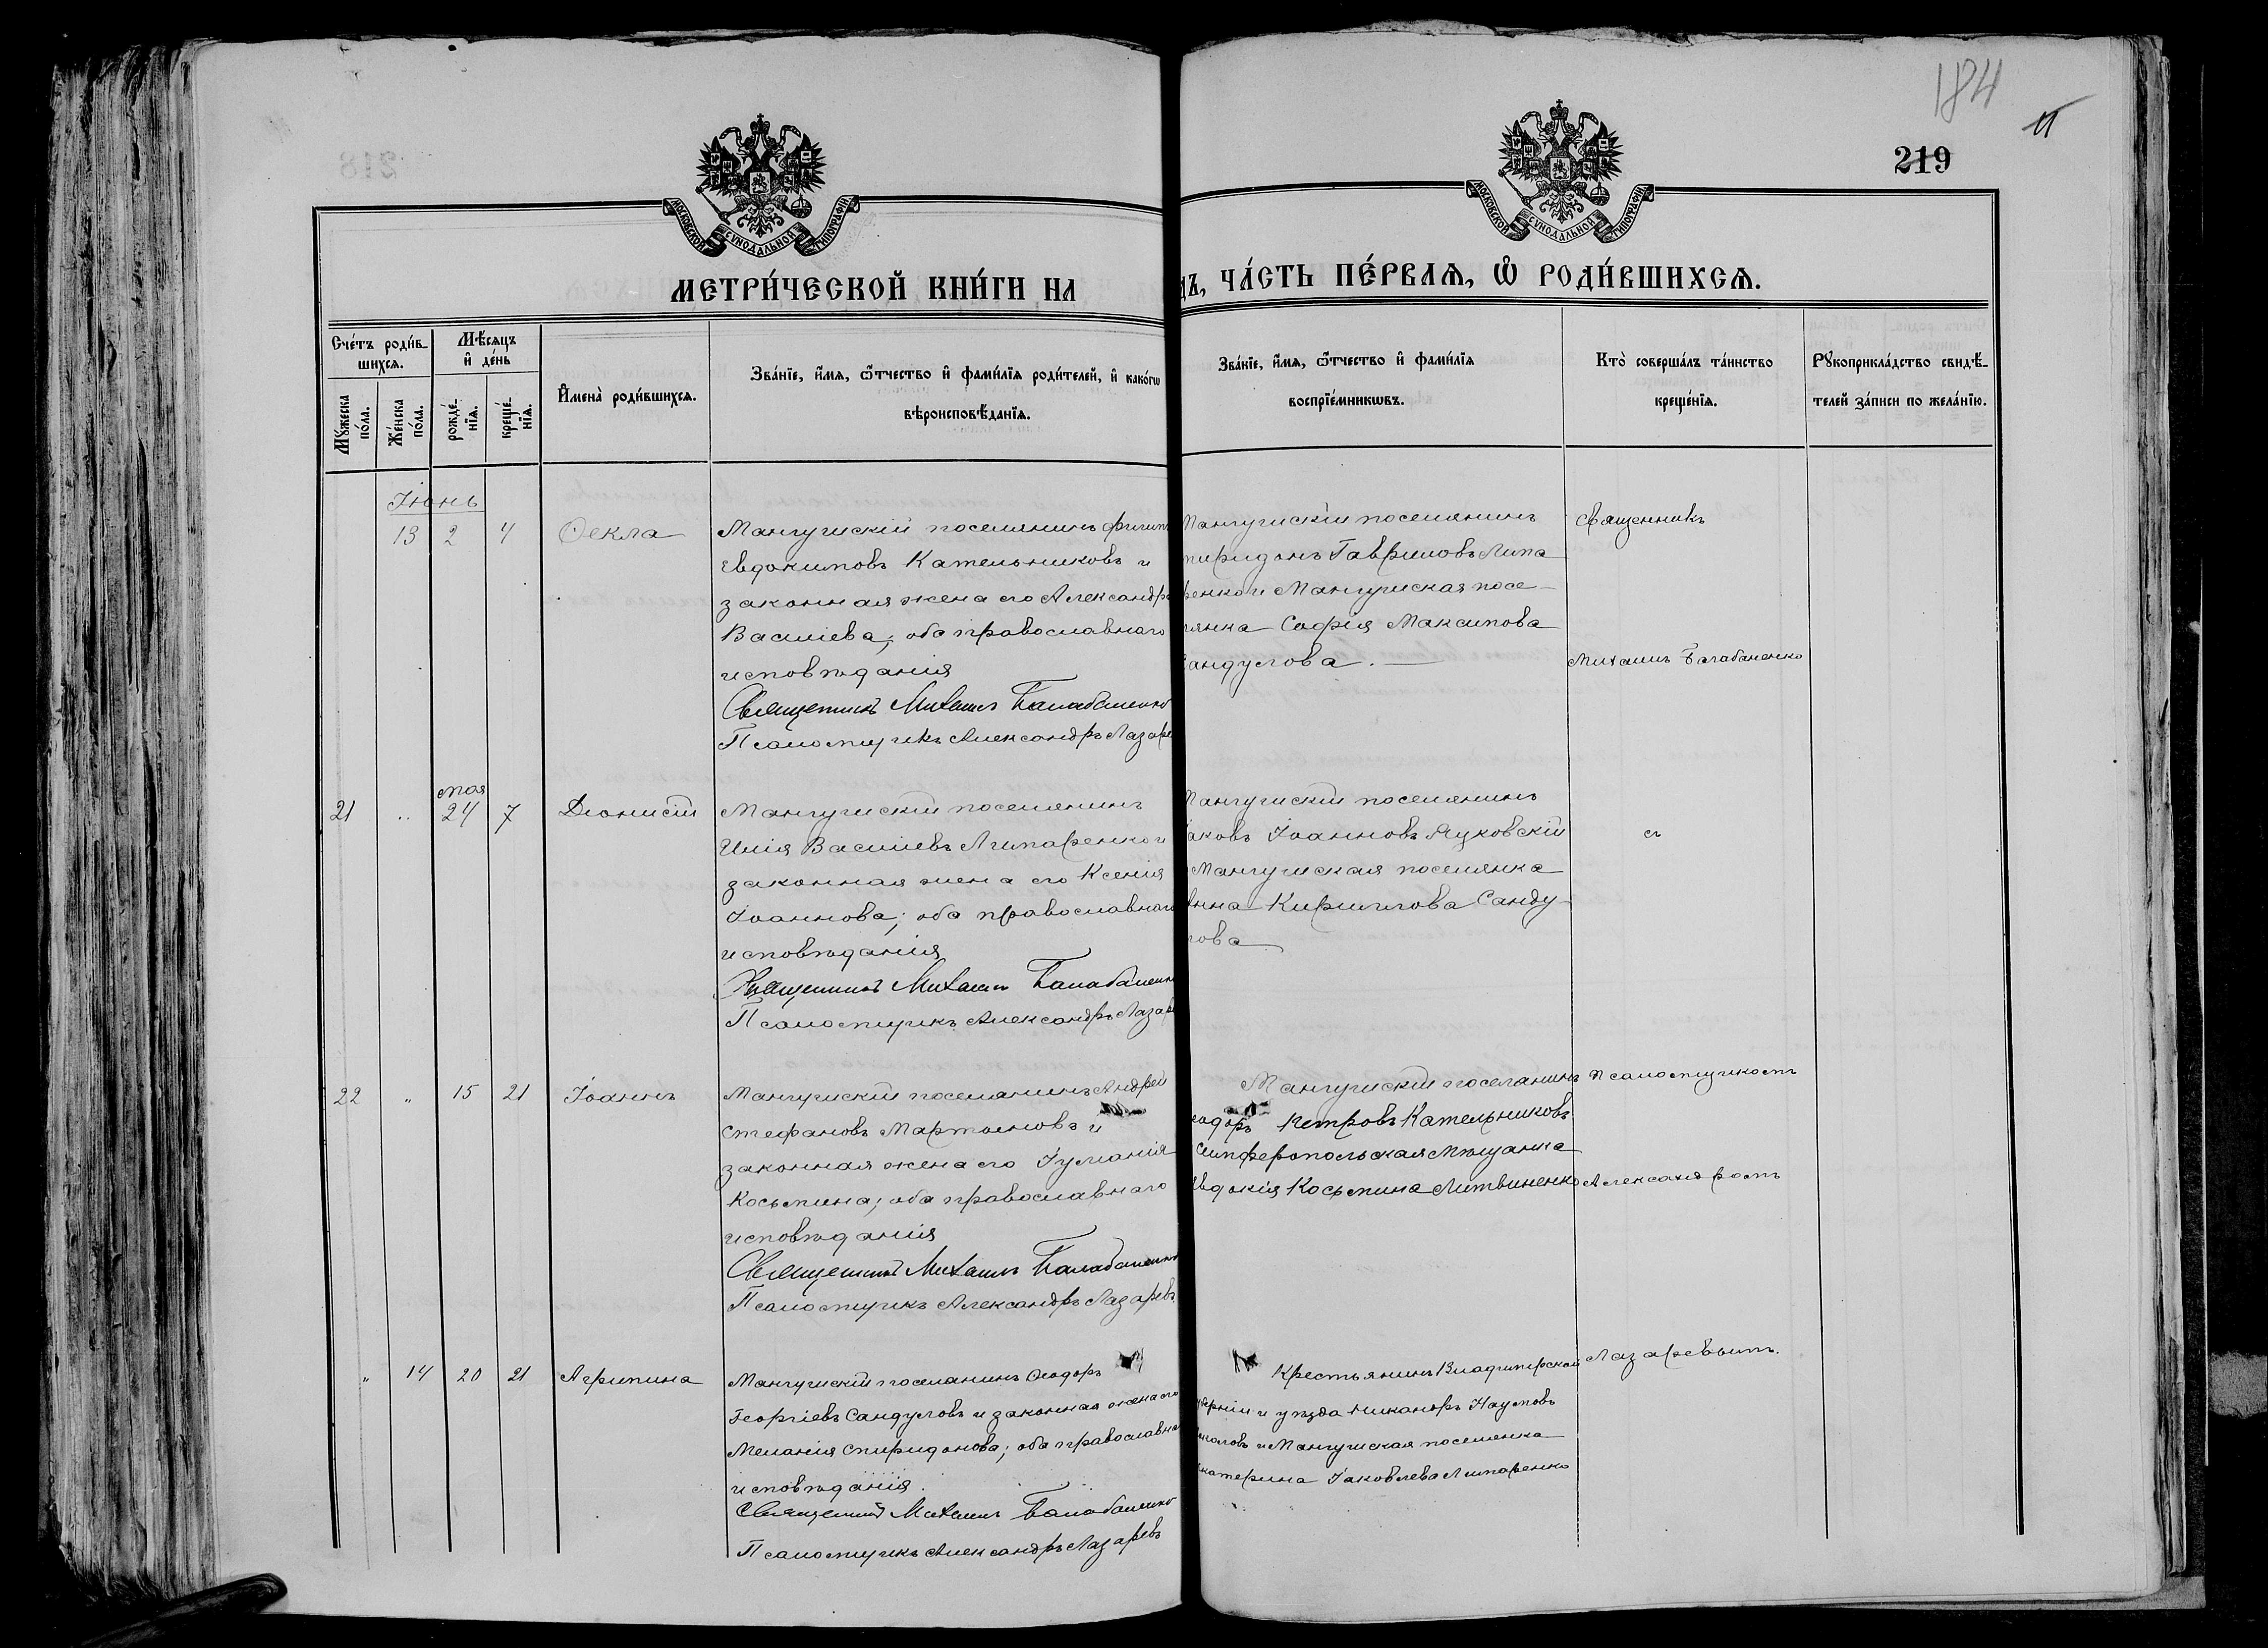 184
11
219
МОСКОВСКОЙ СУНОДАЛЬНОЙ ТИПОГРАФІИ
МОСКОВСКОЙ СУНОДАЛЬНОЙ ТИПОГРАФІИ
МЕТРИ́ЧЕСКОЙ КНИ́ГИ НА
ДЪ, ЧА́СТЬ ПЕ́РВАѦ, Ѽ РОДИ́ВШИХСѦ.
Сче́тъ роди́в-
шихсѧ.
Мꙋ́жеска по́ла.
Же́нска по́ла.
Мѣ́сѧцъ и҆ де́нь
рожде́-нїѧ.
креще́-нїѧ.
И҆мена̀ роди́вшихсѧ.
Зва́нїе, и҆́мѧ, ѻ҆́тчество и҆ фами́лїѧ роди́телей, и҆ како́гѡ
вѣроисповѣ́данїѧ.
Зва́нїе, и҆́мѧ, ѻ҆́тчество и҆ фами́лїѧ
воспрїе́мникѡвъ.
Кто̀ соверша́лъ та́инство
креще́нїѧ.
Рꙋкоприкла́дство свидѣ́-
телей за́писи по жела́нїю.
Іюнь
13 2 4 Ѳекла
Мангушскій поселянинъ Филип
Евдокимовъ Кательниковъ и
законная жена его Александра
Васіліева; оба православнаго
исповѣданія
Священникъ Михаилъ Балабаненко
Псаломщикъ Александръ Лазаре
Мангушскій поселянинъ
пиридонъ Гавриловъ Липа
ренко и Мангушская посе-
лянка Софія Максимова
Сандулова.
Священникъ
Михаилъ Балабаненко
21 .. мая 24 7 Діонисій
Мангушскій поселянинъ
Илія Васіліевъ Липаренко и
законная жена его Ксенія
Іоаннова; оба православнаго
исповѣданія
Священникъ Михаилъ Балабаненко
Псаломщикъ Александръ Лазаре
Мангушскій поселянинъ
аковъ Іоанновъ Яцковскій
Мангушская поселянка
Анна Кириллова Санду-
лова
съ
22 " 15 21 Іоаннъ
Мангушскій поселянинъ Андрей
Стефановъ Мартыновъ и
законная жена его Іуліанія
Косьмина; оба православнаго
исповѣданія
Священникъ Михаилъ Балабаненко
Псаломщикъ Александръ Лазаревъ
Мангушскій поселянинъ
еодоръ Петровъ Кательниковъ
Симферопольская мѣщанка
Евдокія Косьмина Литвиненко
Псаломщикомъ
Александромъ
" 14 20 21 Агрипина
Мангушскій поселянинъ Ѳеодоръ
Георгіевъ Сандуловъ и законная жена его
Меланія Спиридонова; оба православна
исповѣданія
Священникъ Михаилъ Балабаненко
Псаломщикъ Александръ Лазаревъ
Крестьянинъ Владимірской
уберніи и уѣзда Никаноръ Наумовъ
и Мангушская поселянка
катерина Іаковлева Липаренко
Лазаревымъ.